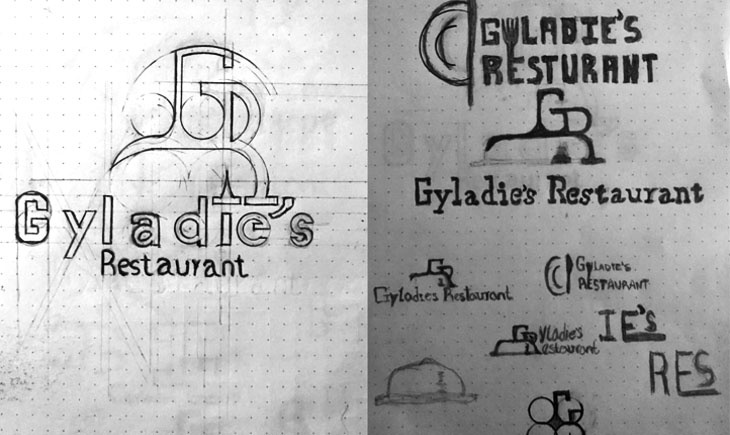 GR
Gyladie's
Restaurant
GYLADIE'S
RESTURANT
GR
Gyladie's Restaurant
GR
Gyladies Restaurant
GYLADIE'S
RESTAURANT
GRyladie's
estaurant
IE'S
RES
G